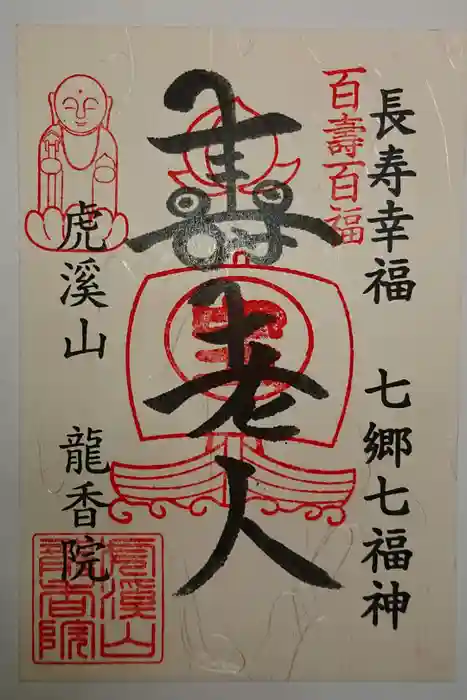 長寿幸福 七郷七福神
百壽百福
寿老人
虎溪山 龍香院
虎溪山
龍香院